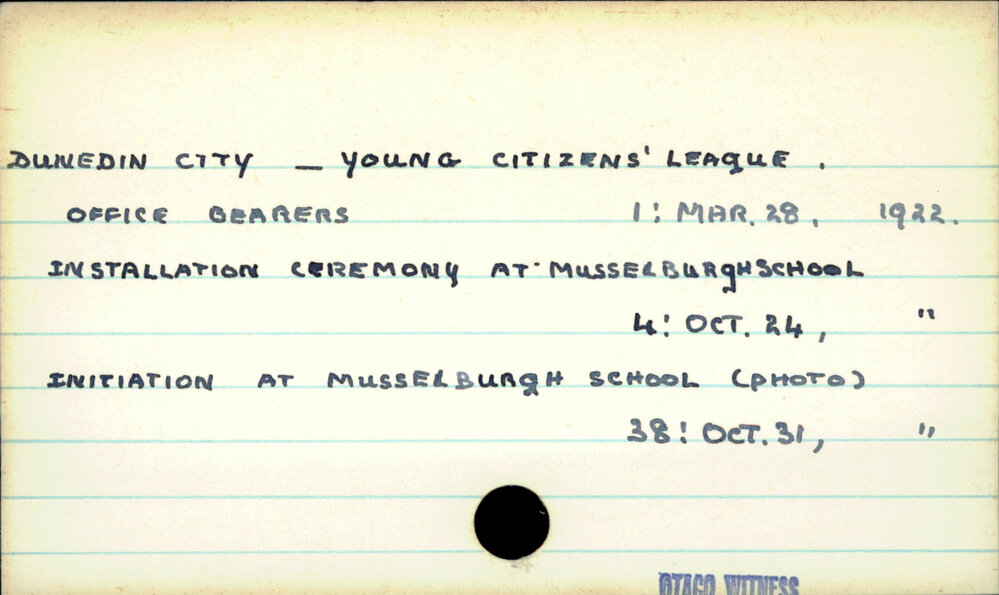 DUNEDIN CITY — YOUNG CITIZENS' LEAGUE .
OFFICE BEARERS 1: MAR. 28, 1922.
INSTALLATION CEREMONY AT MUSSELBURGH SCHOOL
4: OCT. 24, "
INITIATION AT MUSSELBURGH SCHOOL (PHOTO)
38: OCT. 31, "
OTAGO WITNESS